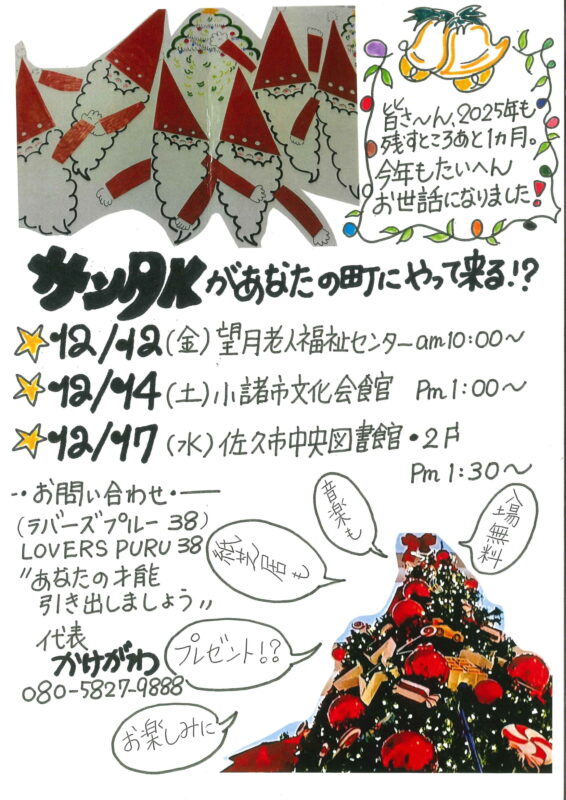 皆さ〜ん、2025年も
残すところあと1カ月。
今年もたいへん
お世話になりました!
サンタKがあなたの町にやって来る!?
12/12(金)望月老人福祉センターam10:00〜
12/14(土)小諸市文化会館 Pm1:00〜
12/17(水)佐久市中央図書館・2F
Pm1:30〜
お問い合わせ
(ラバーズプルー38)
LOVERS PURU 38
"あなたの才能
引き出しましょう"
代表
かけがわ
080-5827-9888
音楽も
入場無料
紙芝居も
プレゼント!?
お楽しみに